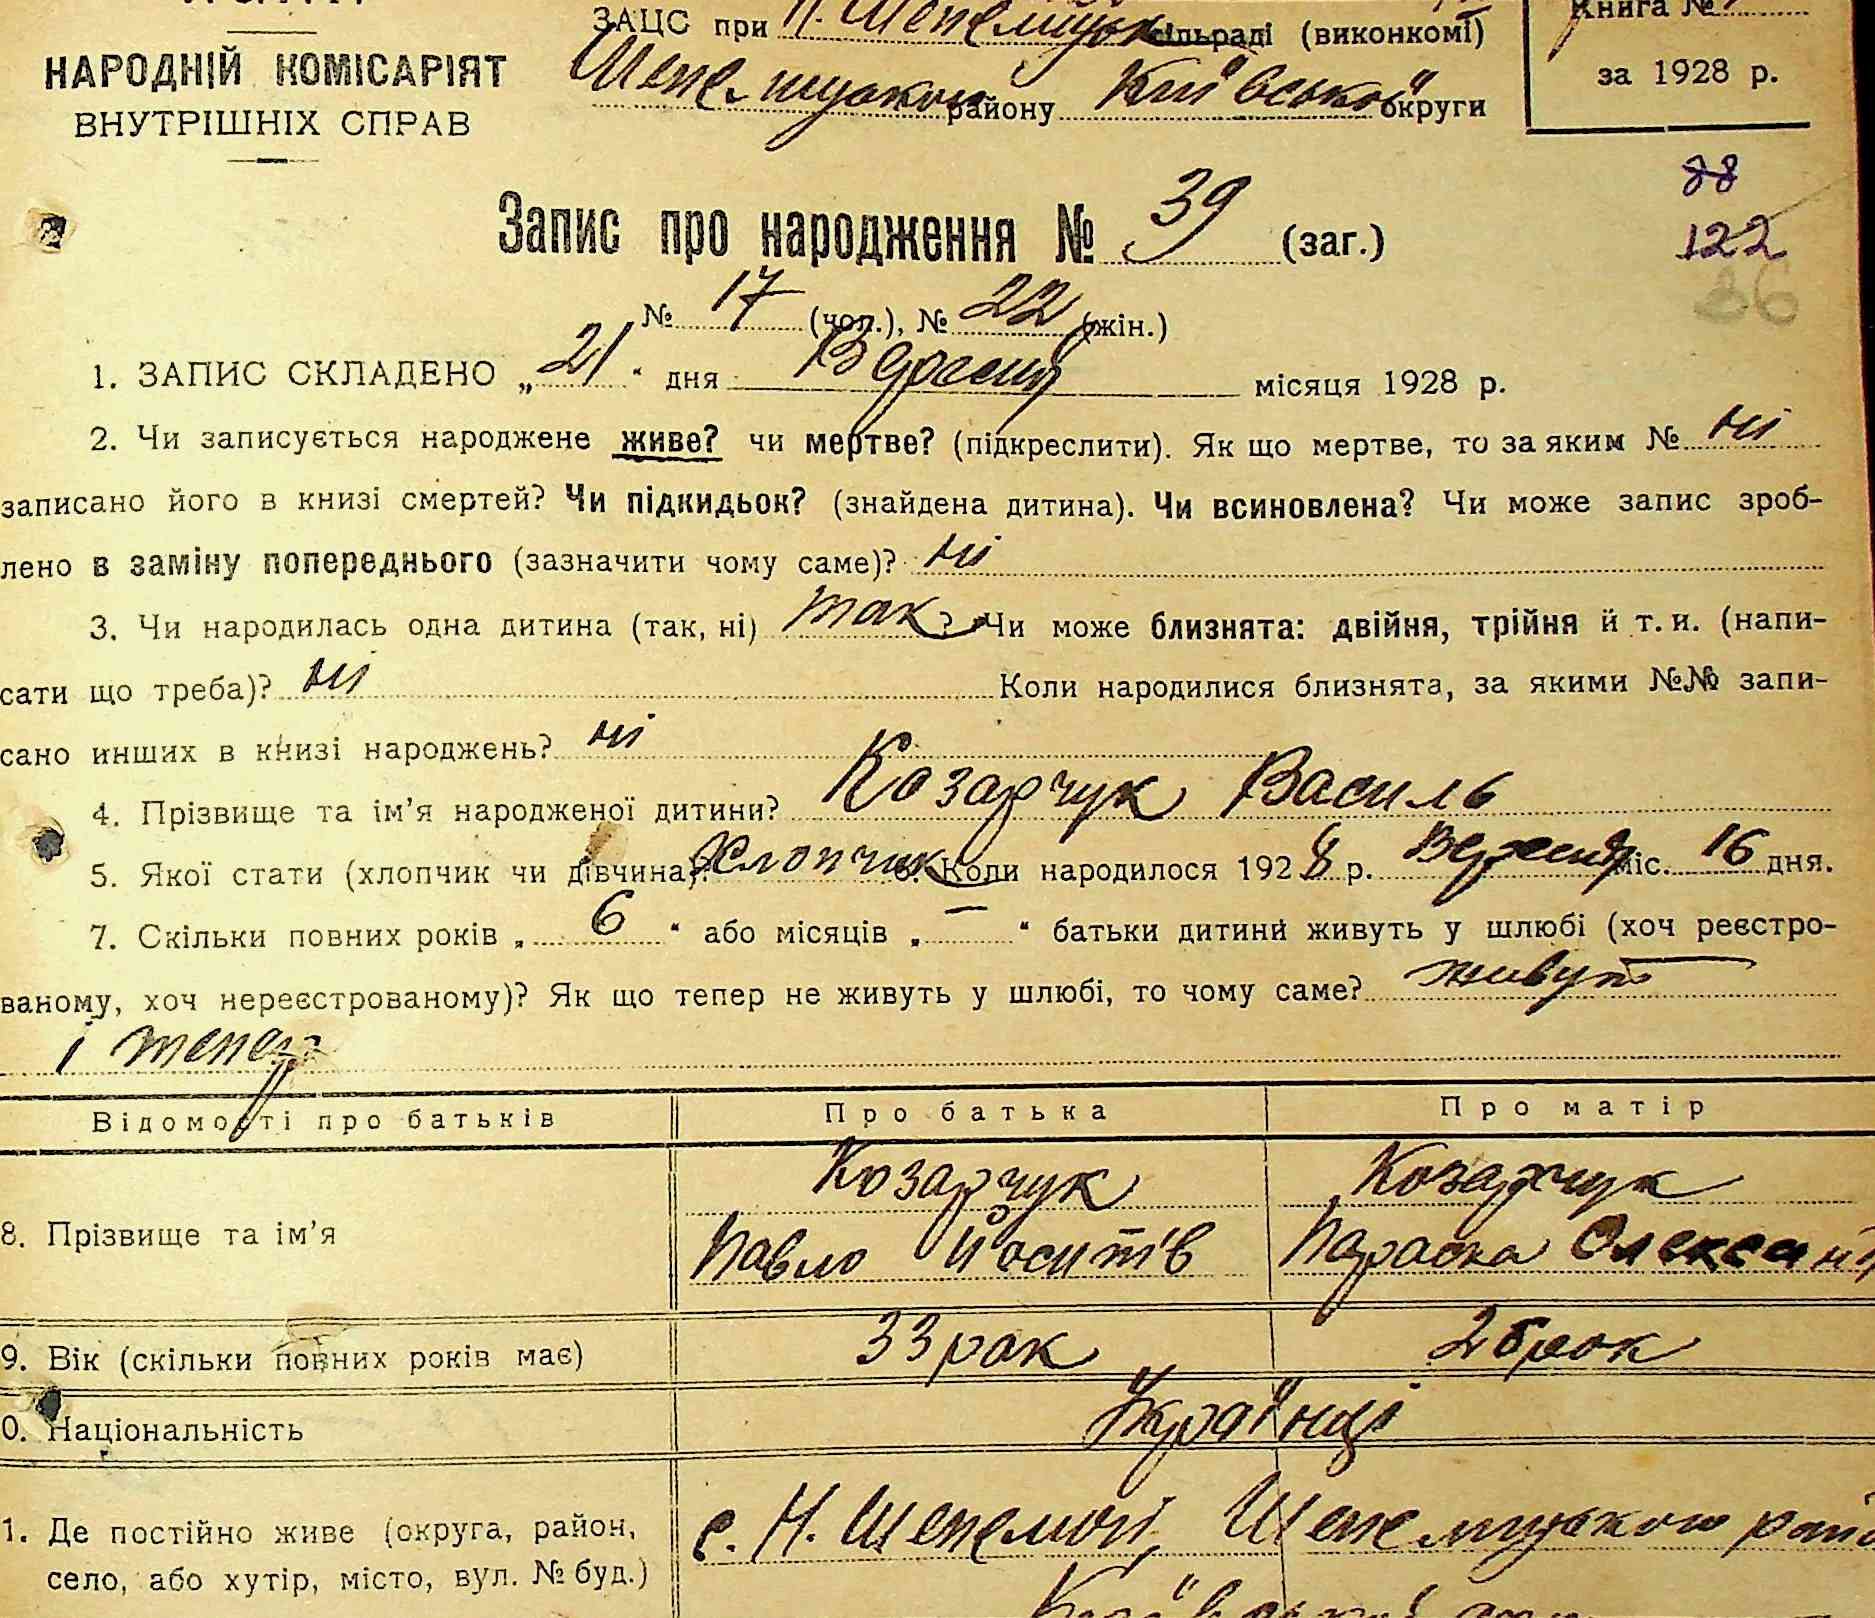 ЗАЦС при Н. Шепелицьк сільраді (виконкомі)
Книга №
НАРОДНІЙ КОМІСАРІЯТ
Шепелицького району Київської округи
за 1928 р.
ВНУТРІШНІХ СПРАВ
88
Запис про народження № 39 (заг.)
122
86
№ 17 (чол.), № 22 (жін.)
1. ЗАПИС СКЛАДЕНО „21“ дня Вересня місяця 1928 р.
2. Чи записується народжене живе? чи мертве? (підкреслити). Як що мертве, то за яким № ні
записано його в книзі смертей? Чи підкидьок? (знайдена дитина). Чи всиновлена? Чи може запис зроб-
лено в заміну попереднього (зазначити чому саме)? ні
3. Чи народилась одна дитина (так, ні) так? Чи може близнята: двійня, трійня й т. и. (напи-
сати що треба)? ні Коли народилися близнята, за якими №№ запи-
сано инших в книзі народжень? ні
4. Прізвище та ім’я народженої дитини? Козарчук Василь
5. Якої стати (хлопчик чи дівчина)? Хлопчик 6. Коли народилося 1928 р. Вересня міс. 16 дня.
7. Скільки повних років „ 6 “ або місяців „ — “ батьки дитини живуть у шлюбі (хоч реєстро-
ваному, хоч нереєстрованому)? Як що тепер не живуть у шлюбі, то чому саме? живуть
і тепер
Відомості про батьків Про батька Про матір
Козарчук Козарчук
8. Прізвище та ім’я Павло Йосипів Параска Олексан
9. Вік (скільки повних років має) 33 рок 26 рок
0. Національність Українці
1. Де постійно живе (округа, район, с. Н. Шепеличі, Шепелицького рай
село, або хутір, місто, вул. № буд.)
Київської